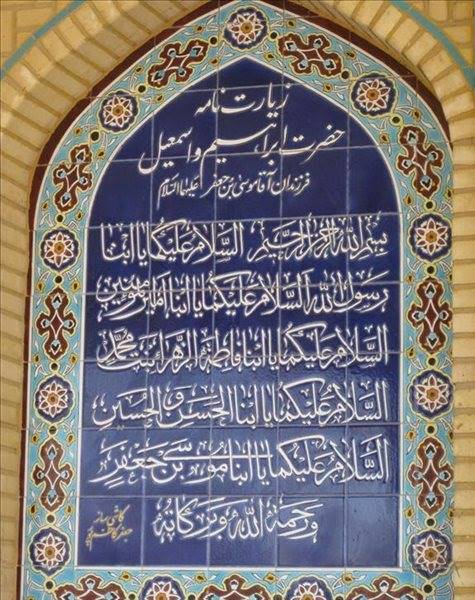 زیارت نامه
حضرت ابراهیم و اسمعیل
فرزندان آقا موسی بن جعفر علیهما السلام
بسم الله الرحمن الرحیم السلام علیکما یا ابنا
رسول الله السلام علیکما یا ابنا امیرالمومنین
السلام علیکما یا ابنا فاطمة الزهراء بنت محمد
السلام علیکما یا ابنا الحسن و الحسین
السلام علیکما یا ابنا موسی بن جعفر
و رحمة الله و برکاته
کاشی ساز